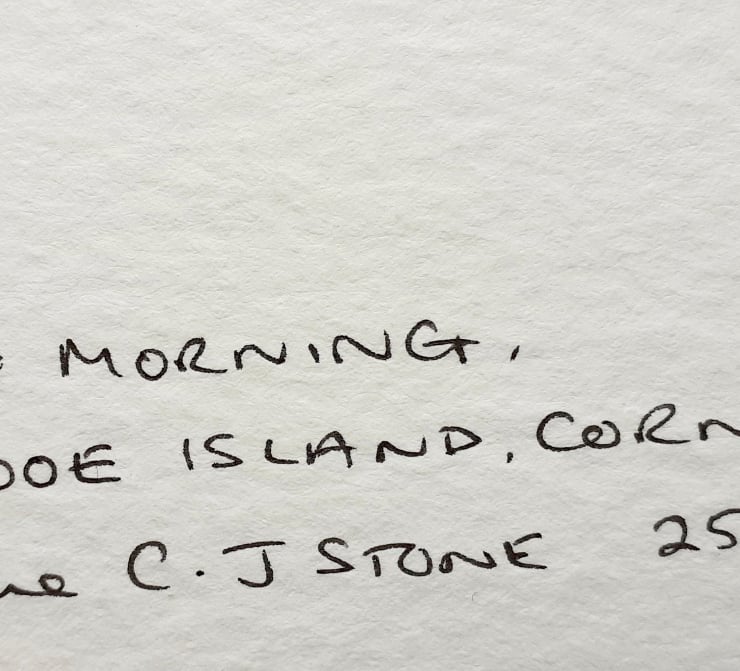 MORNING,
OOE ISLAND, CORN
C. J STONE 25